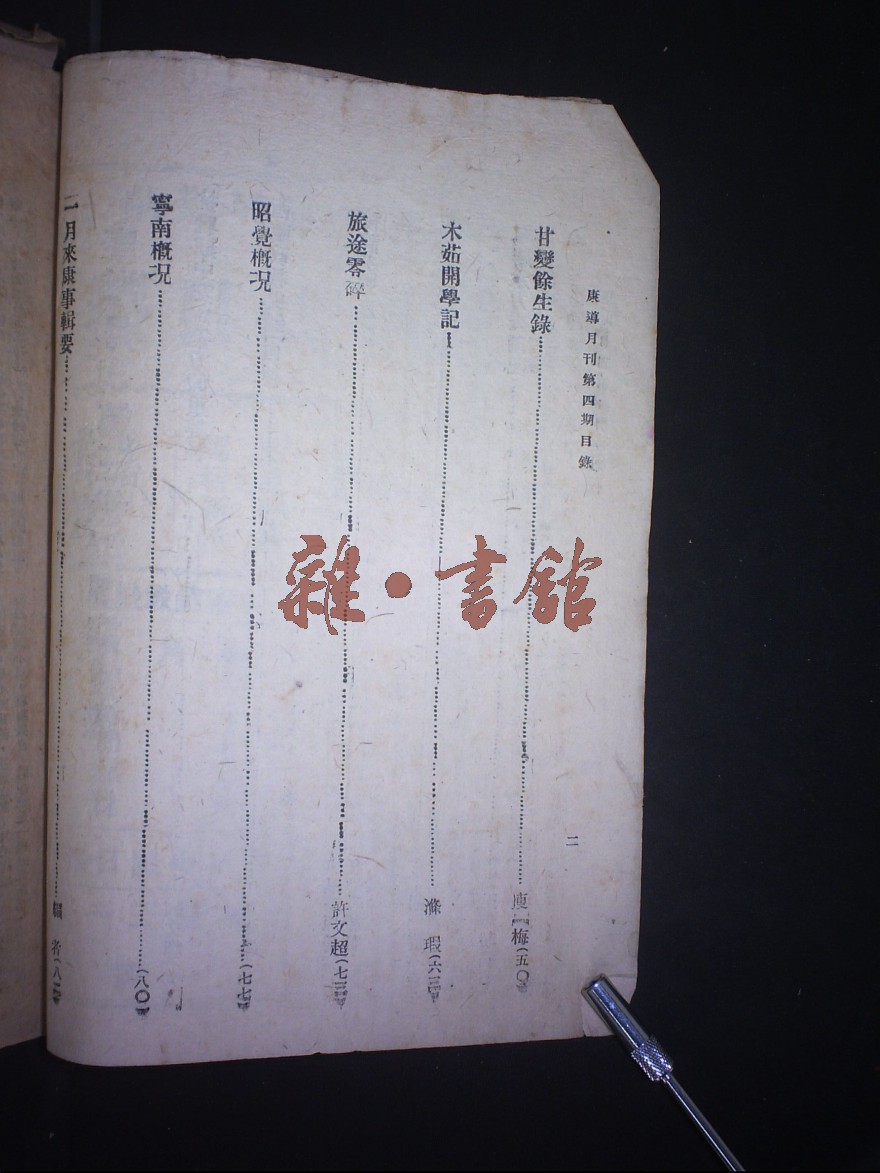 康導月刊第四期目錄
二
甘變餘生錄 (五〇)
木茹開學記 滌 瑕(六
旅途零碎 許文超(七
昭覺概況 (七七)
寧南概況 (八〇)
二月來康事輯要 編 者(八
雜·書館